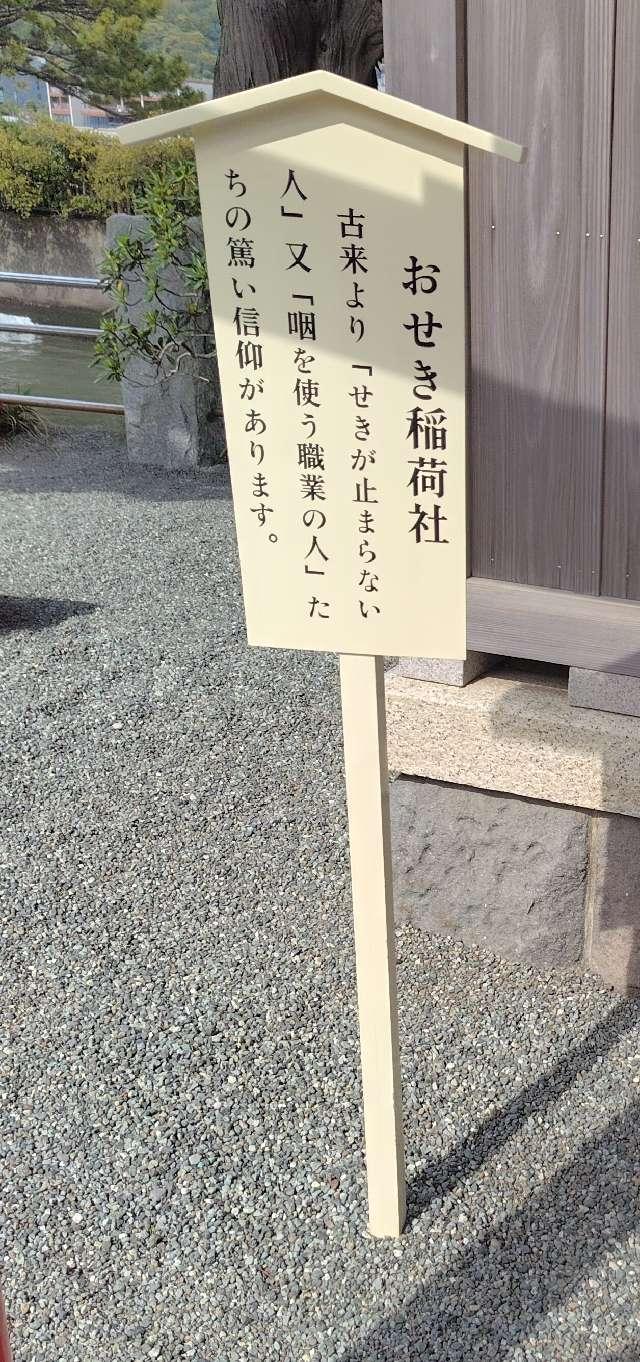 おせき稲荷社
古来より「せきが止まらない
人」又「咽を使う職業の人」た
ちの篤い信仰があります。